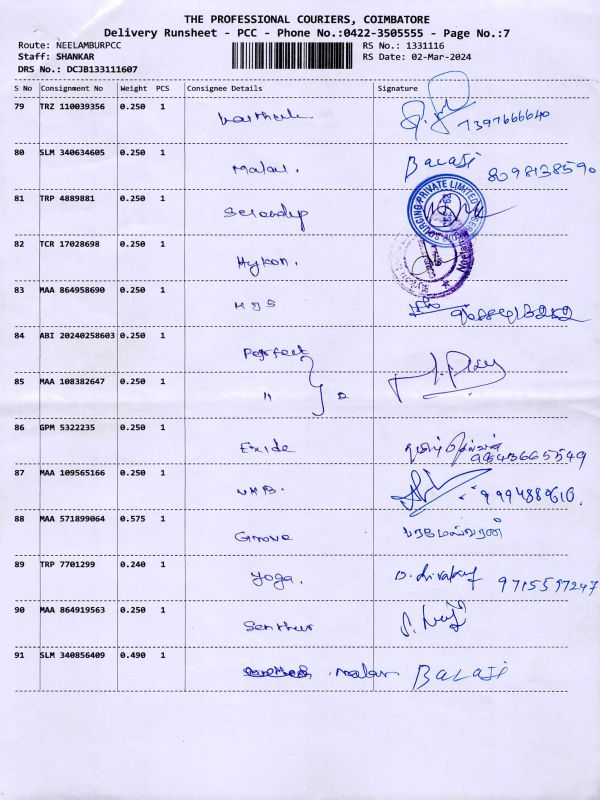 THE PROFESSIONAL COURIERS, COIMBATORE
Delivery Runsheet - PCC - Phone No.:0422-3505555 - Page No.:7
Route: NEELAMBURPCC RS No.: 1331116
Staff: SHANKAR RS Date: 02-Mar-2024
DRS No.: DCJB133111607
S No Consignment No Weight PCS Consignee Details Signature
79 TRZ 110039356 0.250 1
7397666640
80 SLM 340634605 0.250 1
Malar. Balaji 8098138590
81 TRP 4889881 0.250 1
SOURCING PRIVATE LIMITED
82 TCR 17028698 0.250 1
Hykon.
83 MAA 864958690 0.250 1
MJS
84 ABI 20240258603 0.250 1
Perfect
85 MAA 108382647 0.250 1
" 2
86 GPM 5322235 0.250 1
Exide 9843665549
87 MAA 109565166 0.250 1
999488610.
88 MAA 571899064 0.575 1
பரமேஸ்வரன்
89 TRP 7701299 0.240 1
Yoga. 9715597247
90 MAA 864919563 0.250 1
Senthur
91 SLM 340856409 0.490 1
Malar BALAJI